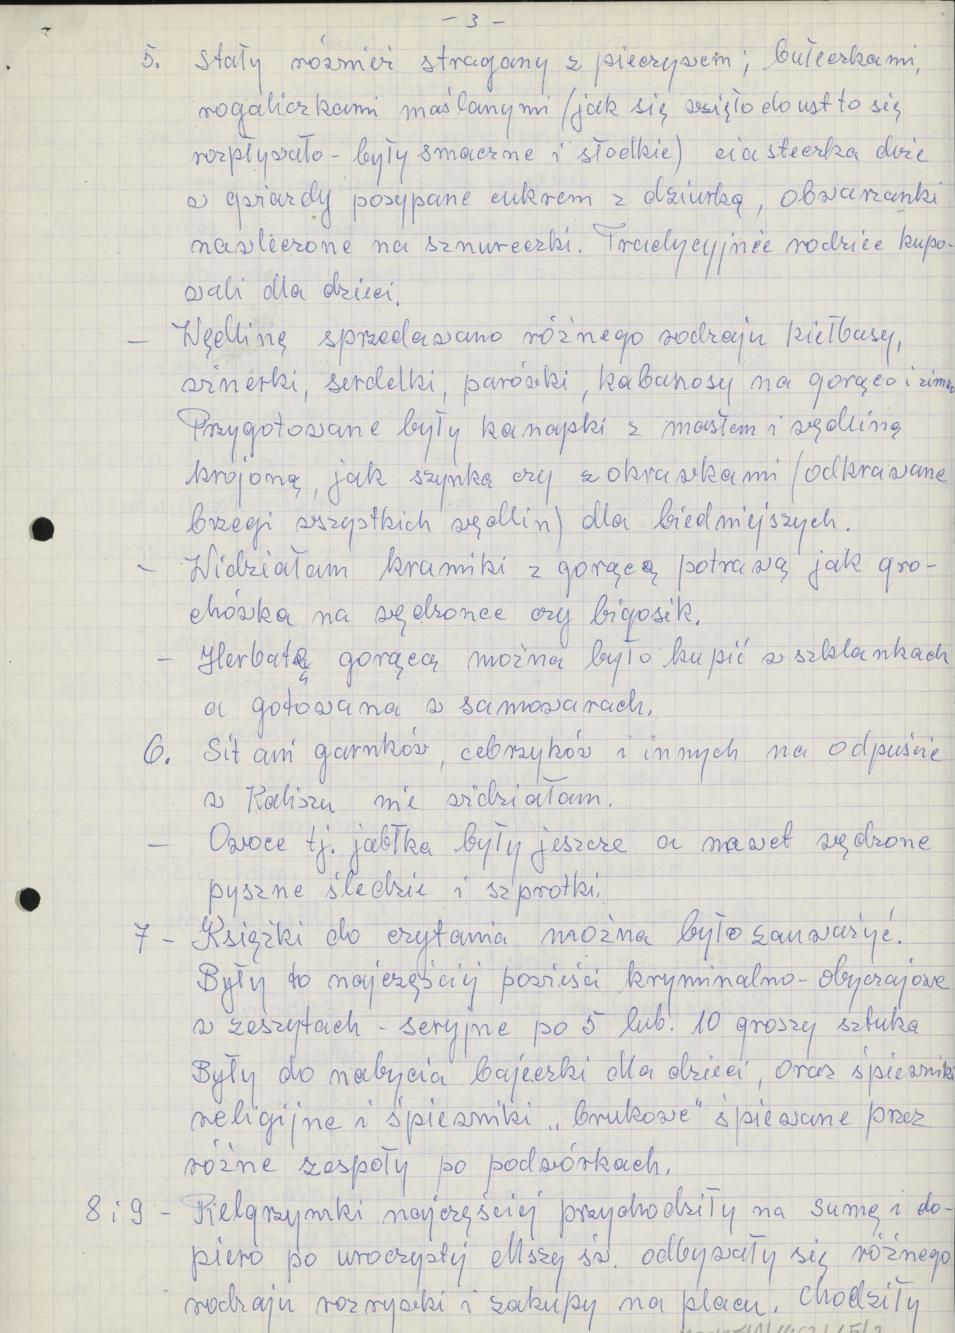 - 3 -
5. Stały również stragany z pieczywem; bułeczkami,
rogaliczkami maślanymi (jak się wzięło do ust to się
rozpływało - były smaczne i słodkie) ciasteczka duże
w gwiazdy posypane cukrem z dziurką, obwarzanki
nawleczone na sznureczki. Tradycyjnie rodzice kupo-
wali dla dzieci.
- Wędlinę sprzedawano różnego rodzaju kiełbasy,
winerki, serdelki, parówki, kabanosy na gorąco i zimno
Przygotowane były kanapki z masłem i wędliną
krojoną, jak szynką czy z okrawkami (odkrawane
brzegi wszystkich wędlin) dla biedniejszych.
- Widziałam kramiki z gorącą potrawą jak gro-
chówka na wędzonce czy bigosik.
- Herbatę gorącą można było kupić w szklankach
a gotowana w samowarach.
6. Sit ani garnków, cebrzyków i innych na odpuście
w Kaliszu nie widziałam.
- Owoce tj. jabłka były jeszcze a nawet wędzone
pyszne śledzie i szprotki.
7 - Książki do czytania można było zauważyć.
Były to najczęściej powieści kryminalno-obyczajowe
w zeszytach - seryjne po 5 lub. 10 groszy sztuka
Były do nabycia bajeczki dla dzieci, oraz śpiewniki
religijne i śpiewniki „brukowe" śpiewane przez
różne zespoły po podwórkach.
8 i 9 - Pielgrzymki najczęściej przychodziły na sumę i do-
piero po uroczystej Mszy św. odbywały się różnego
rodzaju rozrywki i zakupy na placu. Chodziły